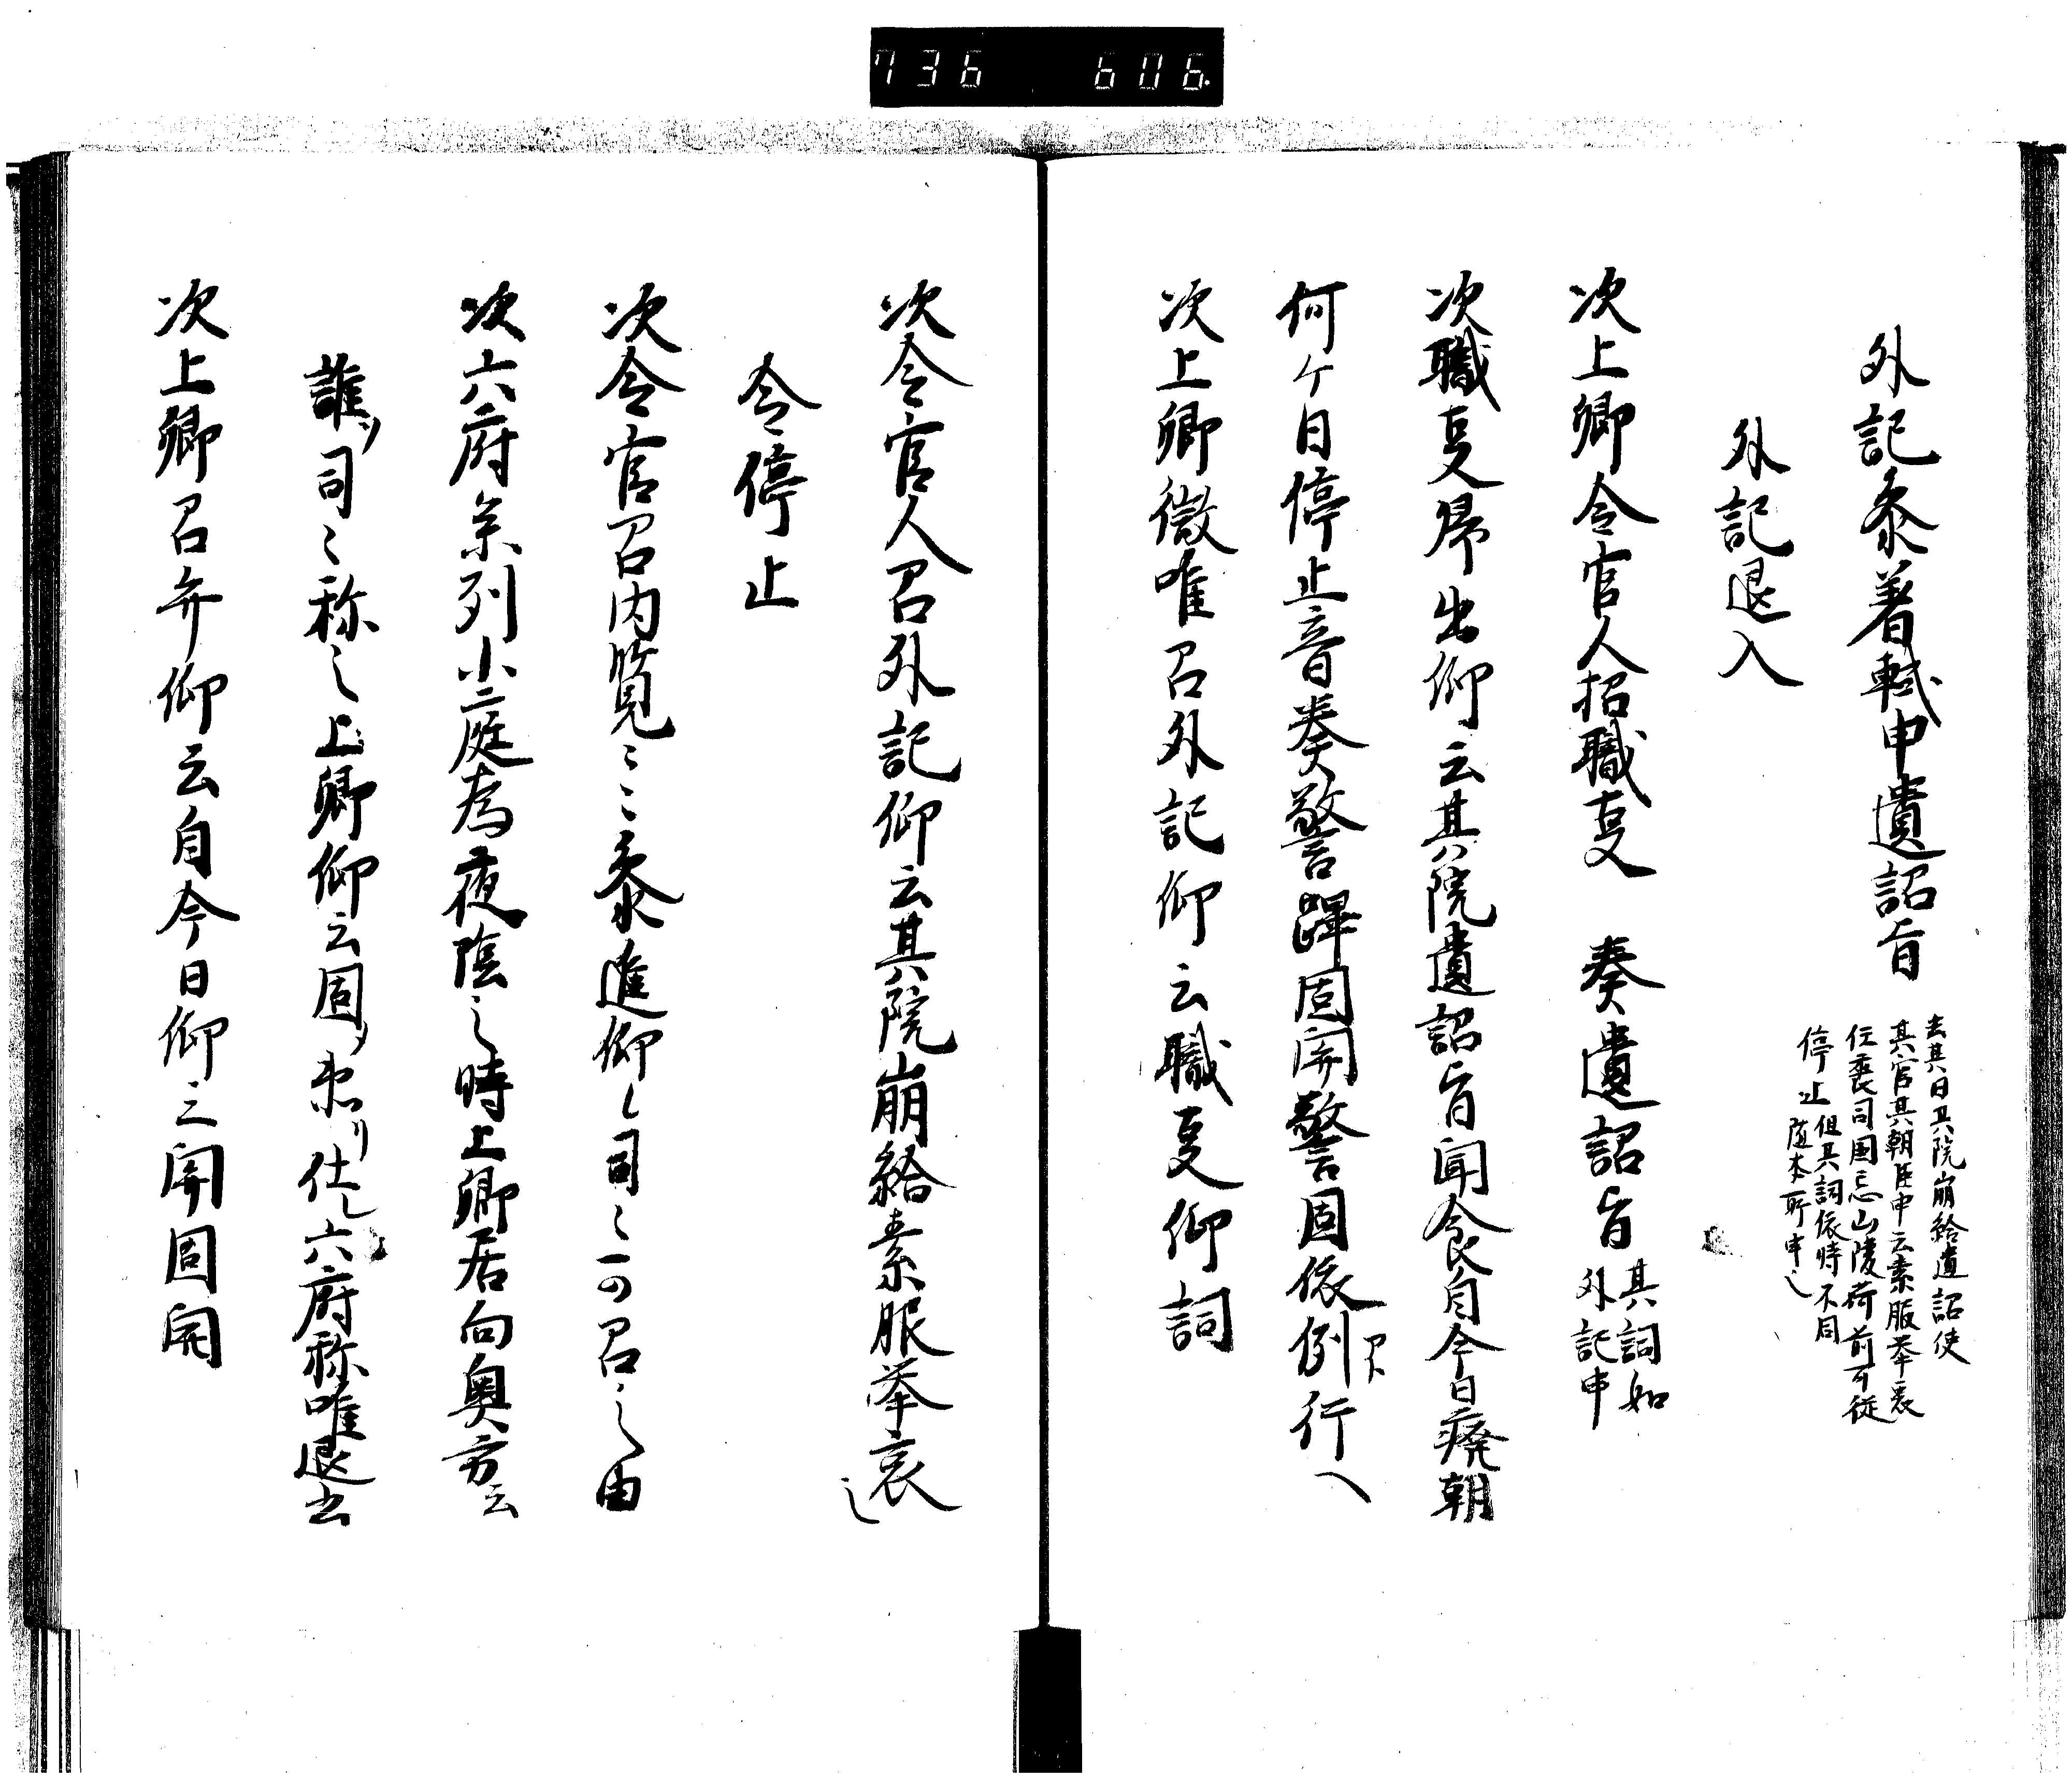 736 606
外記参着軾申遺詔旨
去其日其院崩給遺詔使
其官其朝臣申云素服挙哀
任喪司国忌山陵荷前可従
停止但其詞依時不同
随本所申之
外記退入
次上卿令官人招職事 奏遺詔旨
其詞如
外記申
次職事帰出仰云其院遺詔旨聞食自今日廃朝
何ケ日停止音奏警蹕固関警固依例行ヘ
次上卿微唯召外記仰云職事仰詞
次令官人召外記仰云其院崩給素服挙哀
令停止
次令官召内覧〻〻参進仰〻司〻可召之由
次六府参列小庭為夜陰之時上卿居向奥方云
誰ソ司〻称之上卿仰云固リ仕レ六府称唯退出
次上卿召弁仰云自今日仰之関固関